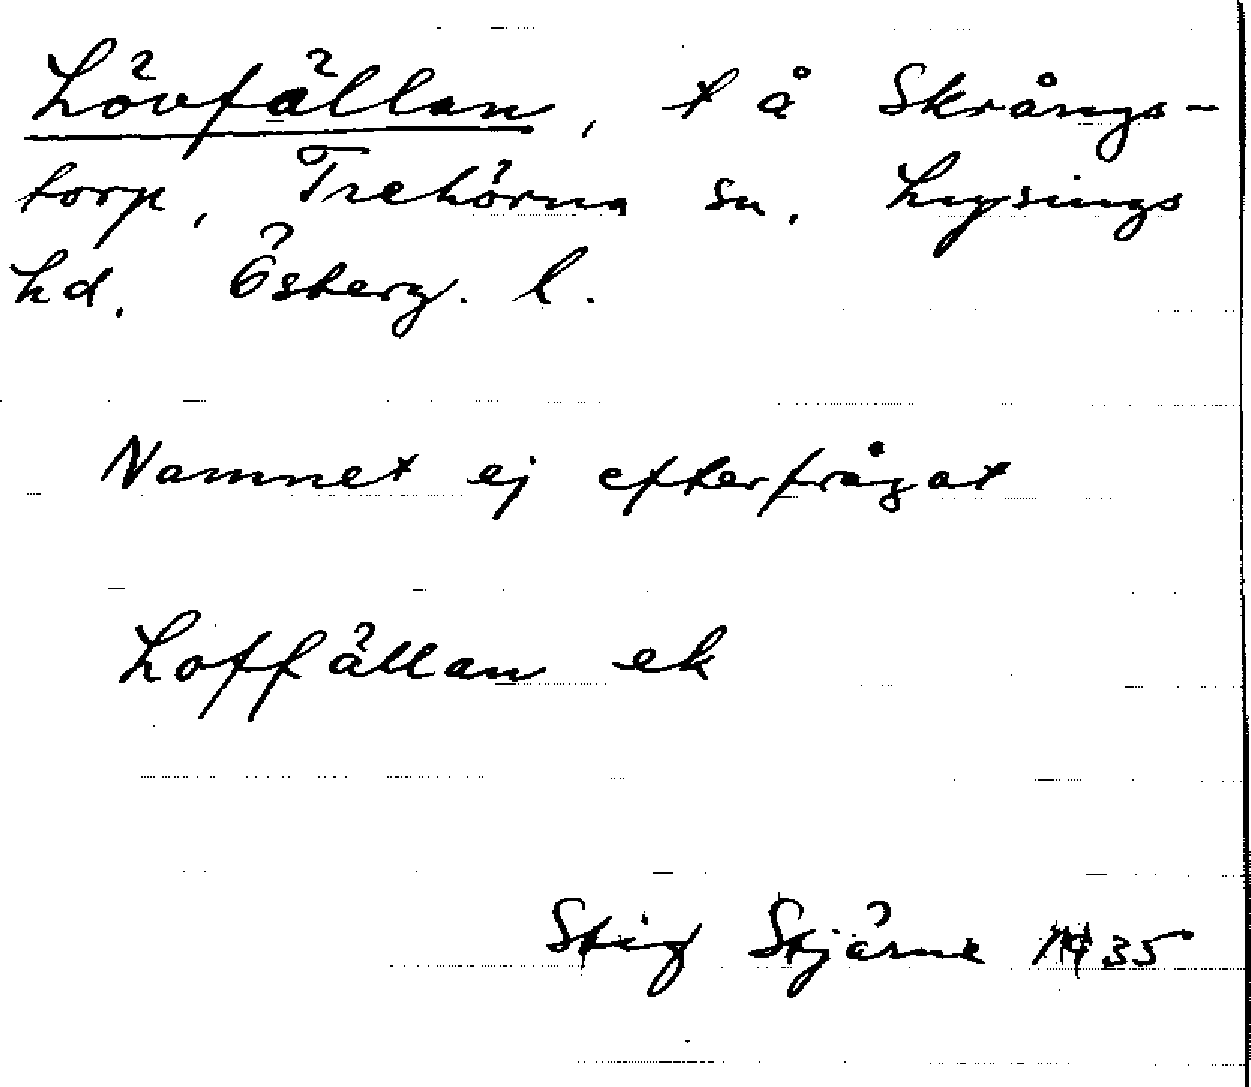 Lövfällan, t å Skrångs-
torp, Trehörna sn, Lysings
hd, Österg. l.
Namnet ej efterfrågat
Loffällan ek
Stig Stjärne 1935